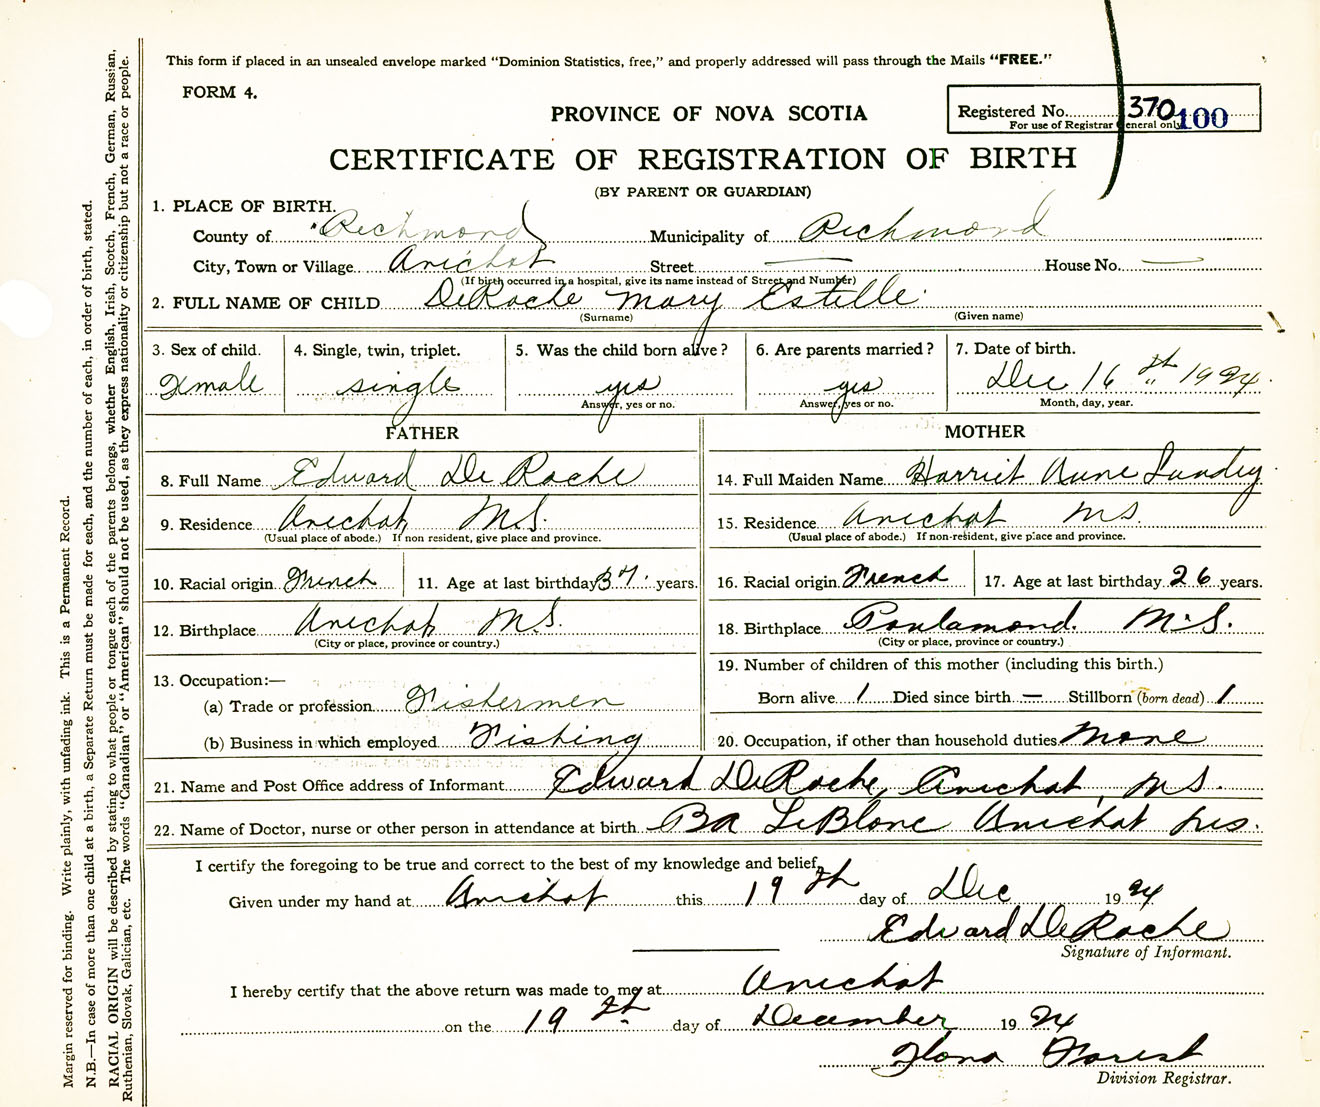 This form if placed in an unsealed envelope marked "Dominion Statistics, free," and properly addressed will pass through the Mails "FREE."
FORM 4.
PROVINCE OF NOVA SCOTIA
Registered No. 370 100
For use of Registrar General only
CERTIFICATE OF REGISTRATION OF BIRTH
(BY PARENT OR GUARDIAN)
1. PLACE OF BIRTH.
County of Richmond Municipality of Richmond
City, Town or Village Arichat Street — House No. —
(If birth occurred in a hospital, give its name instead of Street and Number)
2. FULL NAME OF CHILD DeRoche Mary Estelle
(Surname) (Given name)
3. Sex of child. 4. Single, twin, triplet. 5. Was the child born alive? 6. Are parents married? 7. Date of birth.
Fmale single yes yes Dec 16th 1924
Answer, yes or no. Answer, yes or no. Month, day, year.
FATHER MOTHER
8. Full Name Edward DeRoche 14. Full Maiden Name Harriet Anne Landry
9. Residence Arichat N.S. 15. Residence Arichat NS.
(Usual place of abode.) If non resident, give place and province. (Usual place of abode.) If non-resident, give place and province.
10. Racial origin French 11. Age at last birthday 37 years. 16. Racial origin French 17. Age at last birthday 26 years.
12. Birthplace Arichat N.S. 18. Birthplace Poulamond. N.S.
(City or place, province or country.) (City or place, province or country.)
13. Occupation:— 19. Number of children of this mother (including this birth.)
(a) Trade or profession Fishermen Born alive 1 Died since birth — Stillborn (born dead) 1
(b) Business in which employed Fishing 20. Occupation, if other than household duties None
21. Name and Post Office address of Informant Edward DeRoche, Arichat, N.S.
22. Name of Doctor, nurse or other person in attendance at birth BA LeBlanc Arichat
I certify the foregoing to be true and correct to the best of my knowledge and belief,
Given under my hand at Arichat this 19th day of Dec 1924
Edward DeRoche
Signature of Informant.
I hereby certify that the above return was made to me at Arichat
on the 19th day of December 1924
Forest
Division Registrar.
Margin reserved for binding. Write plainly, with unfading ink. This is a Permanent Record.
N.B.—In case of more than one child at a birth, a Separate Return must be made for each, and the number of each, in order of birth, stated.
RACIAL ORIGIN will be described by stating to what people or tongue each of the parents belongs, whether English, Irish, Scotch, French, German, Russian,
Ruthenian, Slovak, Galician, etc. The words "Canadian" or "American" should not be used, as they express nationality or citizenship but not a race or people.